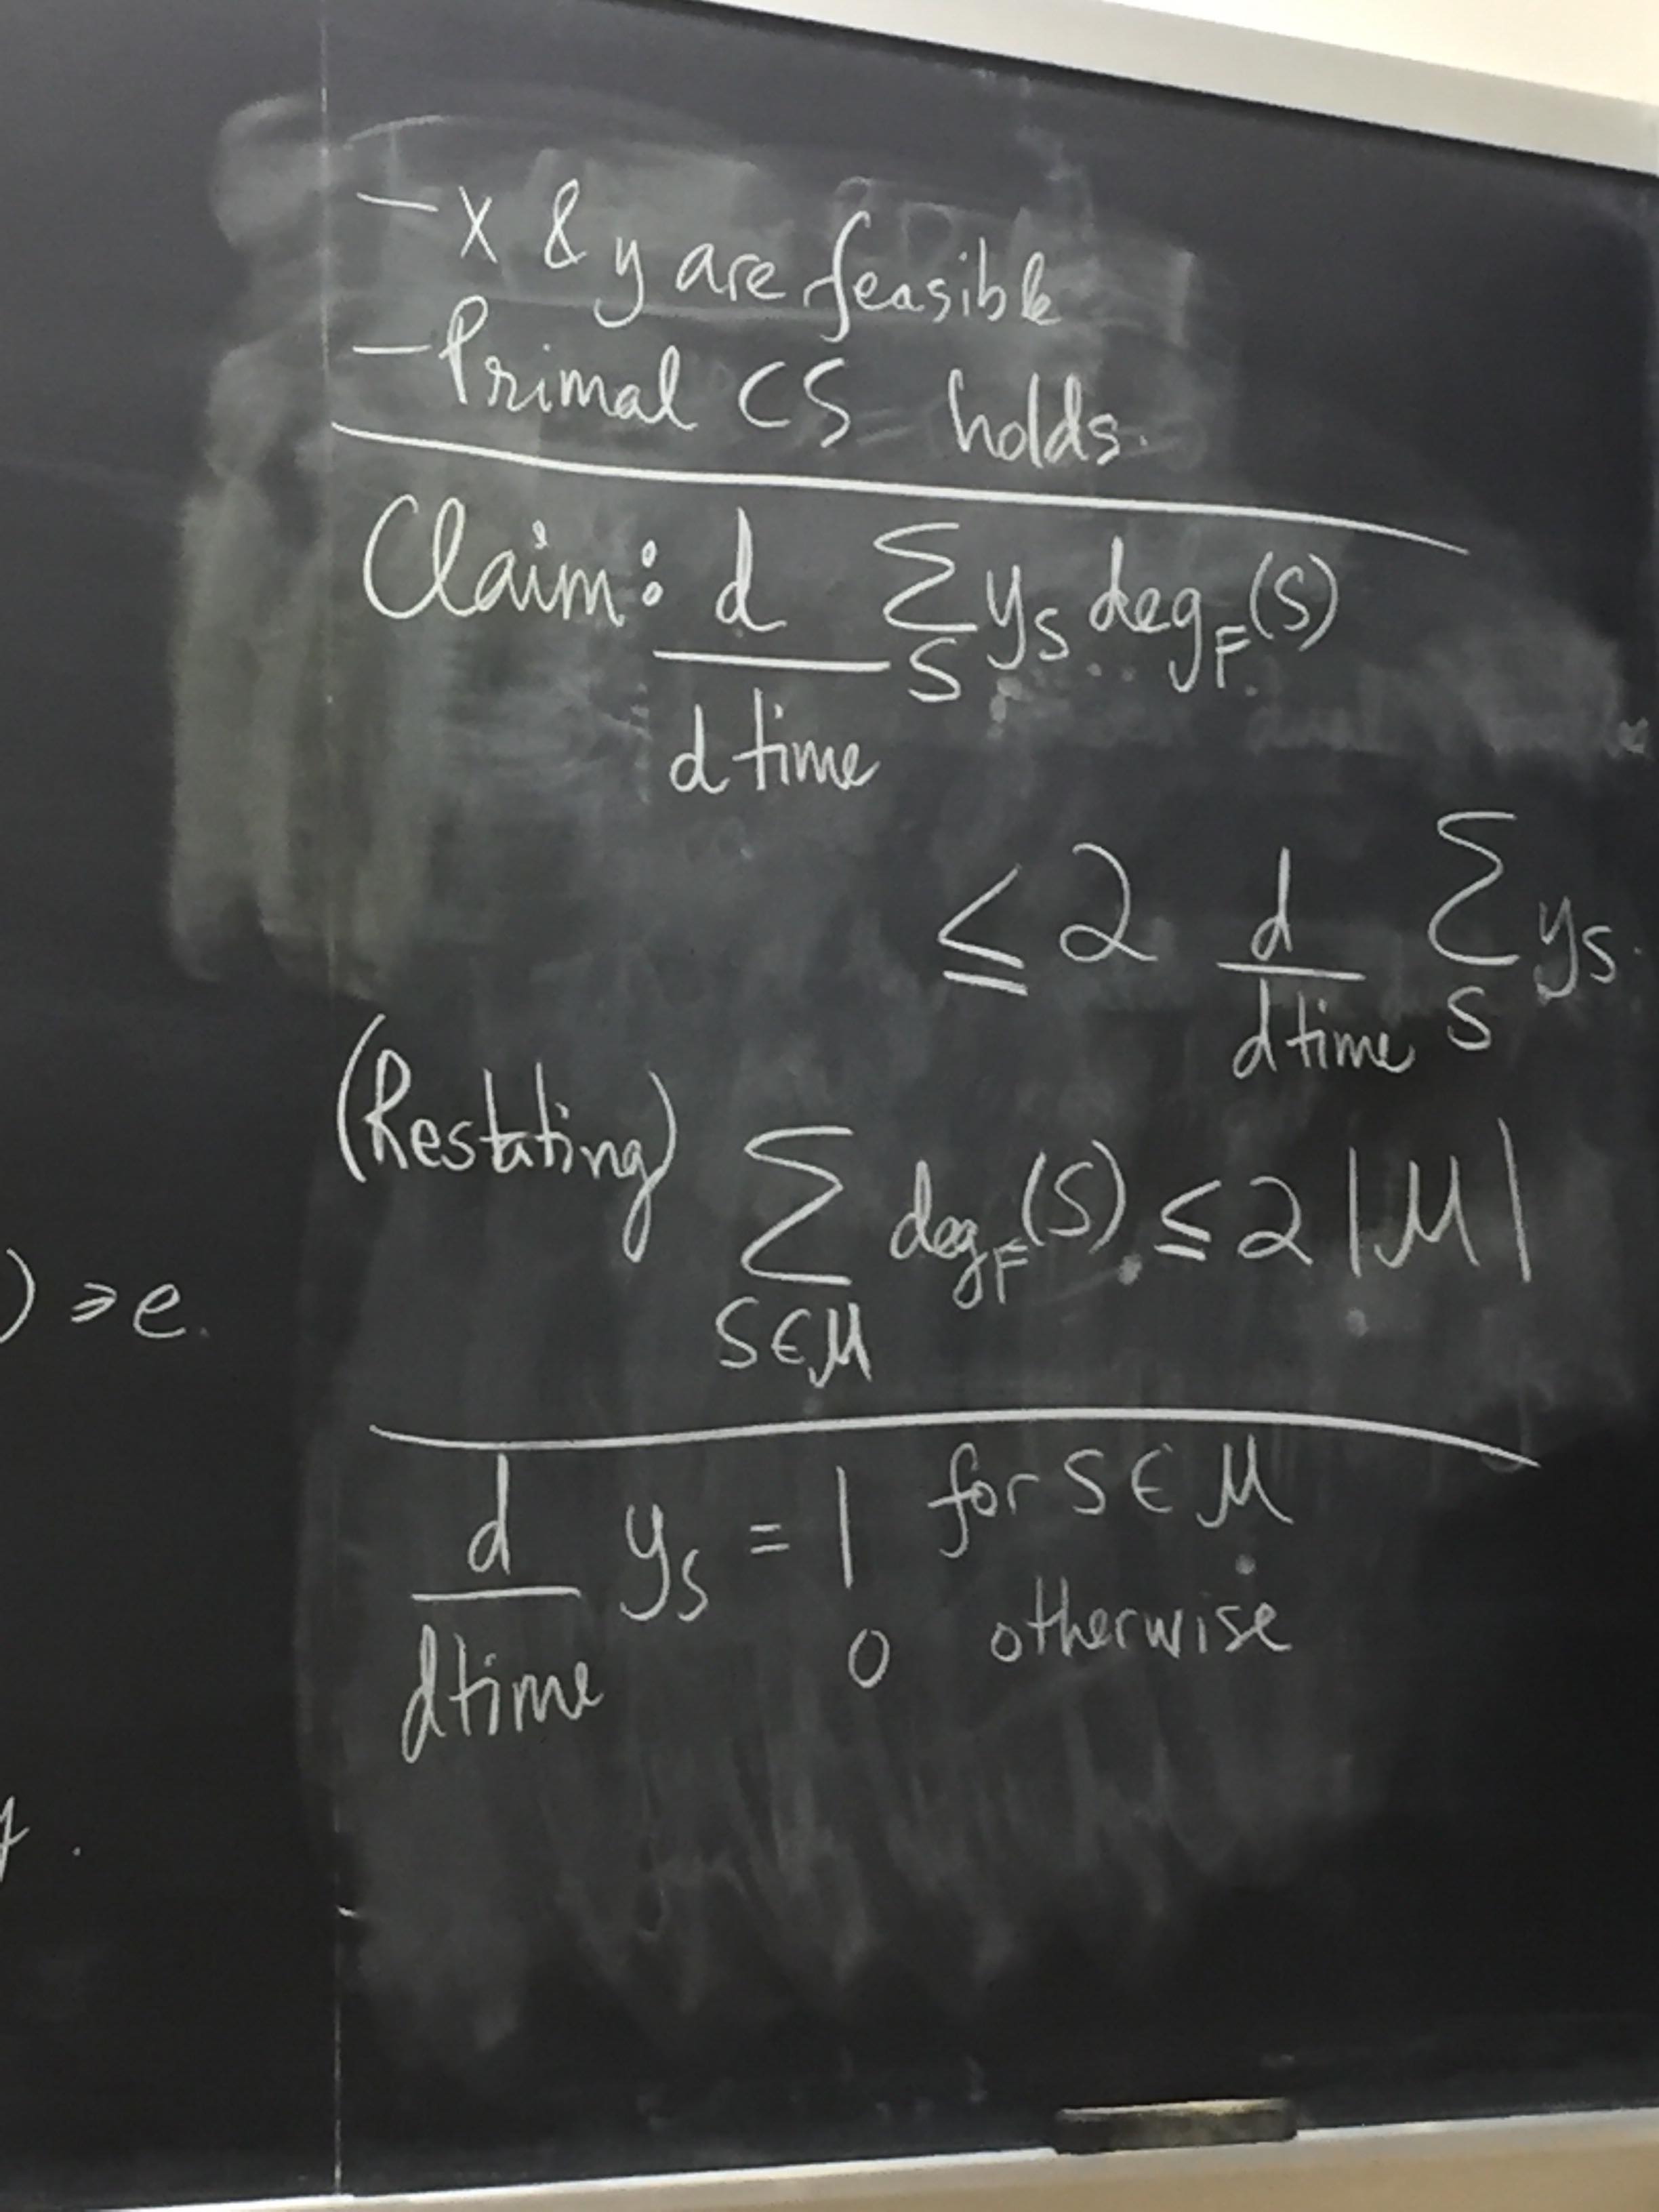 – x & y are feasible
– Primal CS holds.
Claim: d/dtime ∑_S y_S deg_F(S)
≦ 2 d/dtime ∑_S y_S.
(Restating) ∑_{S∈M} deg_F(S) ≤ 2|M|
) ∋ e.
d/dtime y_S = 1 for S ∈ M
0 otherwise